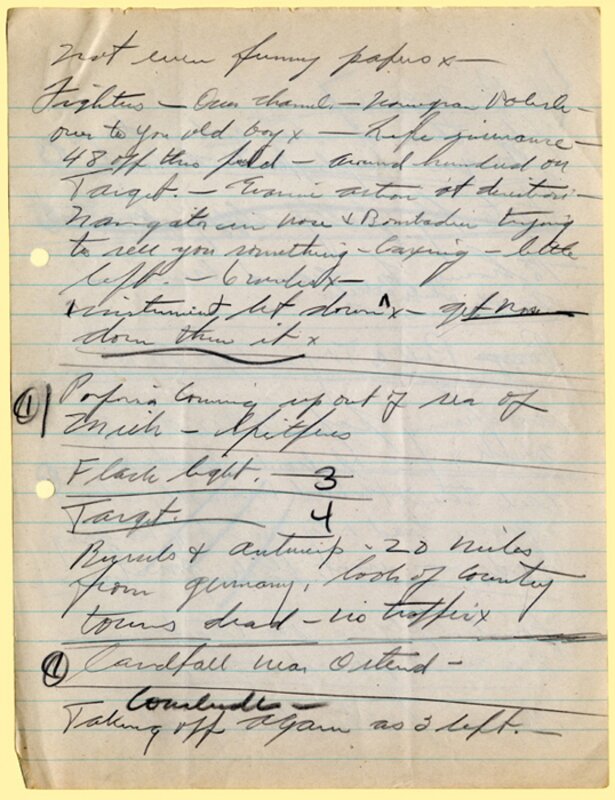 Not even funny papers x —
Fighters — Over channel — Norwegian
over to you old boy x — Life insurance —
48 off this field — around hundred on
Target. — Evasive action at direction —
Navigator in nose & Bombadier trying
to sell you something — boxing — little
left. —
instrument let down x — get nose
down thru it x
① coming up out of sea of
— Spitfires
Flash light. — 3
Target. 4
Brussels & Antwerp - 20 miles
from Germany, look of country
towns dead — no traffic x
② Landfall near Ostend —
Conclude —
Taking off again as 3 left. —